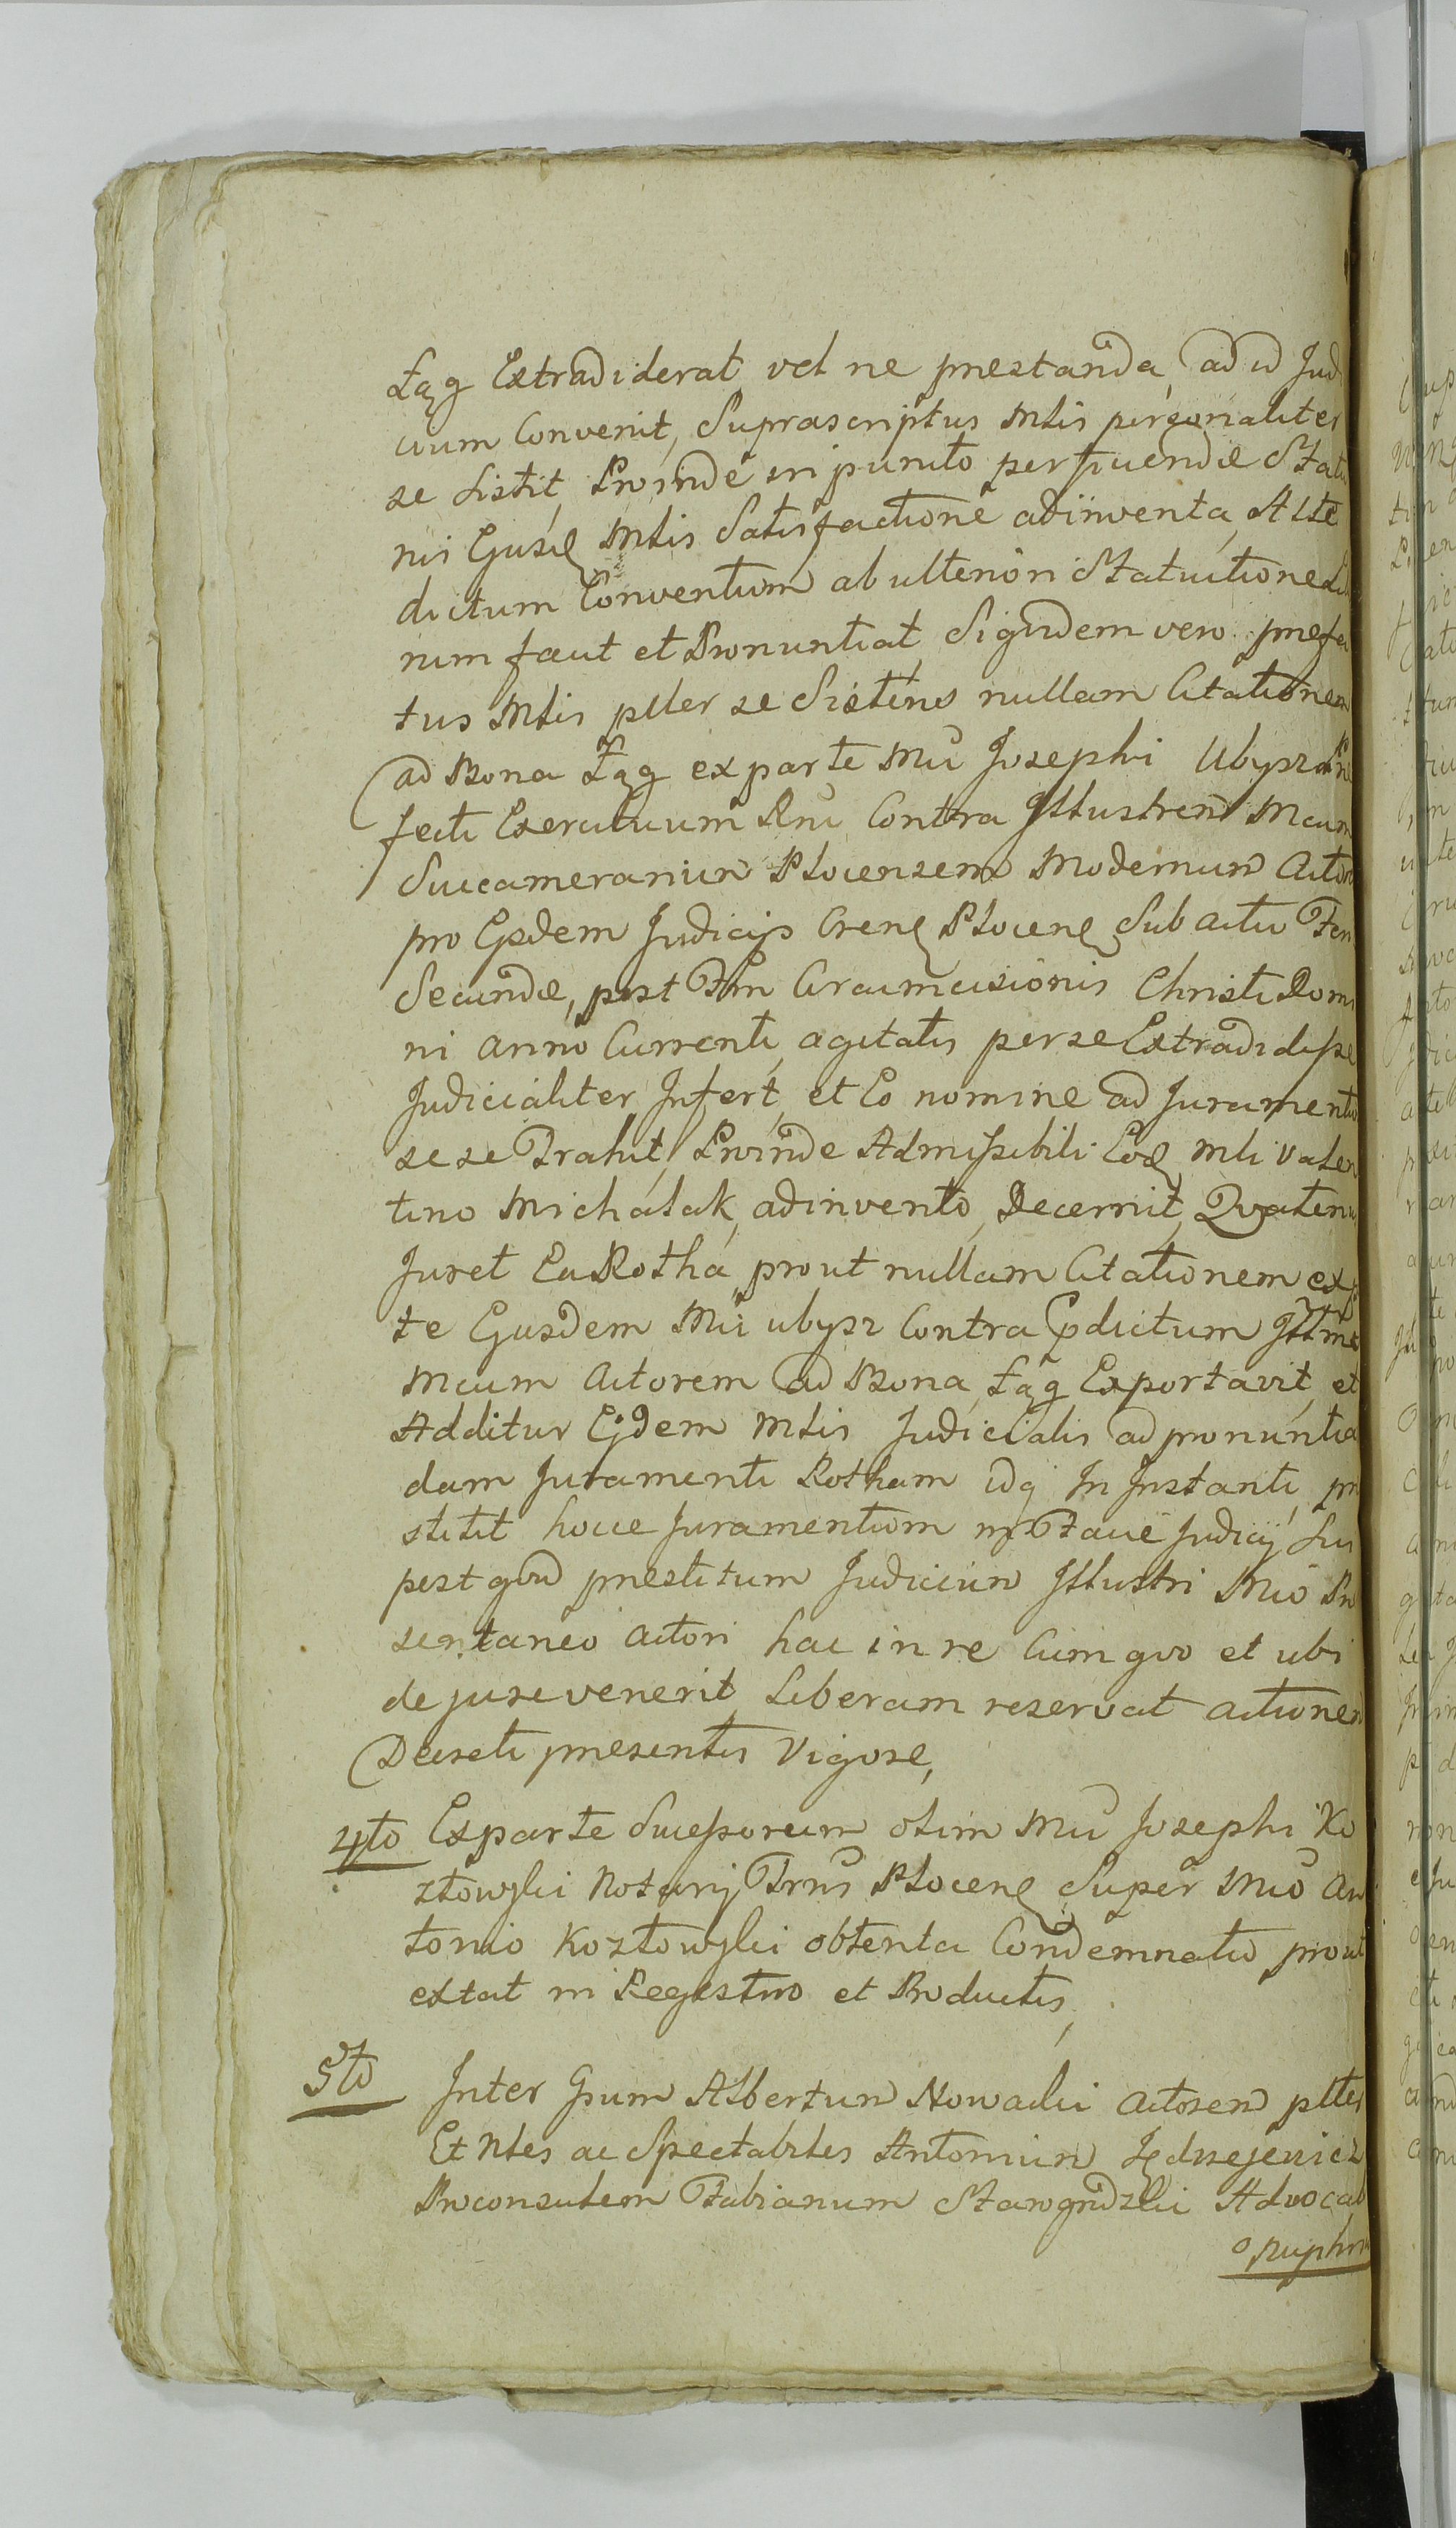 Łąg Extradiderat vel ne prestanda, ad id Jud
icium Convenit, Suprascriptus Mlis personaliter
se Sistit, Proinde in puncto perficiendæ Statu
nis Ejusd Mlis Satisfactione adinventa, Alte
dictum Conventum ab ulteriori Statuitione Li
rum facit et Pronuntiat, Siquidem vero prefa
tus Mlis pltter se Sistens nullam Citationem
ad Bona Łąg ex parte Mci Josephi Ubysz
fecti Exercituum Rni Contra Illustrem Mcum
Succamerarium Plocensem Modernum Actor
pro Ejsdem Judicijs Crens Plocens Sub actu Fer
Secundæ, post Ftm Circumcisionis Christi Domi
ni Anno Currenti, agitatis per se Extradidisse
Judicialiter Infert, et Eo nomine ad Juramentu
sese Trahit, Proinde Admissibili Eod Mli Valen
tino Michalak, adinvento, Decernit, Quatenu
Juret Ea Rotha, prout nullam Citationem ex p
te Ejusdem Mci Ubysz Contra pdictum Illme
Mcum Actorem ad Bona Łąg Exportavit, et
Additur Ejdem Mlis Judicialis ad pronuntia
dam Juramenti Rotham idq In Instanti, pr
stitit hocce Juramentum in Facie Judicij Su
post quod prestitum Judicium Illustri Mco Pr
sentaneo Actori hac in re Cum quo et ubi
de jure venerit, Liberam reservat actionem
Decreti presentis Vigore,
4to Ex parte Sucessorum olim Mci Josephi Ko
złowski Notarij Trris Plocens Super Mco An
tonio Kozłowski obtenta Condemnatio prout
extat in Registro et Productis,
5to Inter Gsum Albertum Nowacki Actorem pltter
Et Nles ac Spectabiles Antonium Jędrzejewicz
Proconsulem Fabianum Starogrodzki Advocat
Oruphri